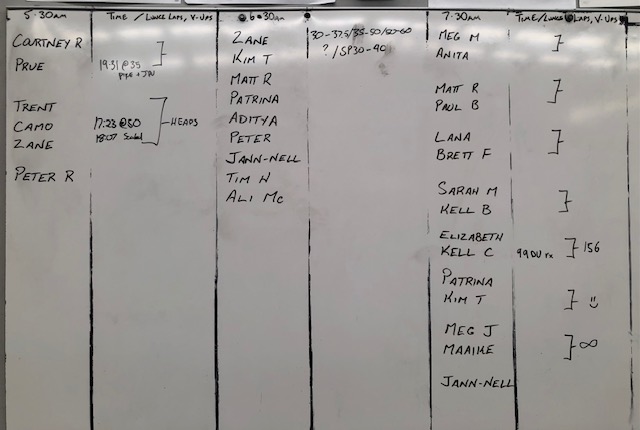 5-30am
TIME / LUNGE LAPS, V-UPS
COURTNEY R
PRUE
19:31 @ 35
TRENT
CAMO
ZANE
17:23 @ 50
18:07
HEADS
PETER R
6-30am
ZANE
KIM T
MATT R
PATRINA
ADITYA
PETER
JANN-NELL
TIM W
ALI MC
30-37.5/35-50/50-60
? / SP30-40
7-30am
TIME/LUNGE LAPS, V-UPS
MEG M
ANITA
MATT R
PAUL B
LANA
BRETT F
SARAH M
KELL B
ELIZABETH
KELL C
99 DU rx
156
PATRINA
KIM T
MEG J
MAAIKE
∞
JANN-NELL